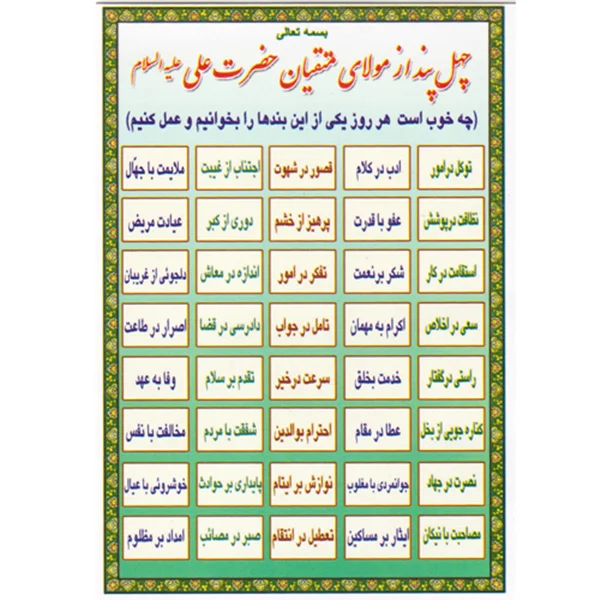 بسمه تعالی
چهل پند از مولای متقیان حضرت علی علیه السلام
(چه خوب است هر روز یکی از این بندها را بخوانیم و عمل کنیم)
توکل در امور
ادب در کلام
قصور در شهوت
اجتناب از غیبت
ملایمت با جهّال
نظافت در پوشش
عفو با قدرت
پرهیز از خشم
دوری از کبر
عیادت مریض
استقامت در کار
شکر بر نعمت
تفکر در امور
اندازه در معاش
دلجوئی از غریبان
سعی در اخلاص
اکرام به مهمان
تامل در جواب
دادرسی در قضا
اصرار در طاعت
راستی در گفتار
خدمت بخلق
سرعت در خیر
تقدم بر سلام
وفا به عهد
کناره جویی از بخل
عطا در مقام
احترام بوالدین
شفقت با مردم
مخالفت با نفس
نصرت در جهاد
جوانمردی با مغلوب
نوازش بر ایتام
پایداری بر حوادث
خوشروئی با عیال
مصاحبت با نیکان
ایثار بر مساکین
تعطیل در انتقام
صبر در مصائب
امداد بر مظلوم